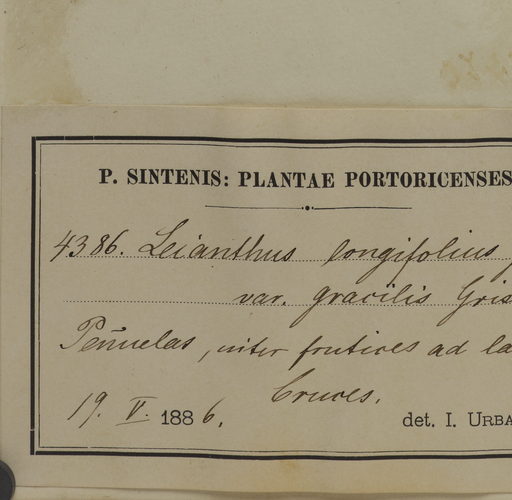 P. SINTENIS: PLANTAE PORTORICENSES
4386. Leianthus longifolius
var. gracilis Gris
Peñuelas, inter frutices ad la
Cruces.
19. V. 1886.
det. I. URBA